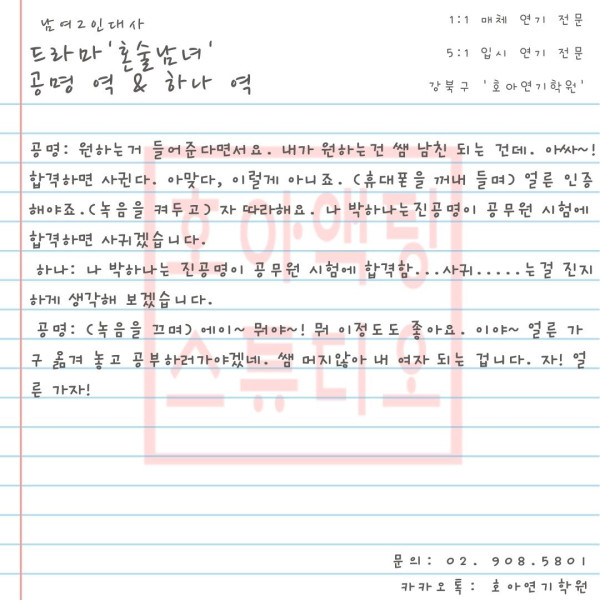 남여2인대사
드라마'혼술남녀'
공명 역 & 하나 역
1:1 매체 연기 전문
5:1 입시 연기 전문
강북구 '호아연기학원'
공명: 원하는거 들어준다면서요. 내가 원하는건 쌤 남친 되는 건데. 아싸~!
합격하면 사귄다. 아맞다, 이렇게 아니죠. (휴대폰을 꺼내 들며) 얼른 인증
해야죠.(녹음을 켜두고) 자 따라해요. 나 박하나는진공명이 공무원 시험에
합격하면 사귀겠습니다.
하나: 나 박하나는 진공명이 공무원 시험에 합격함...사귀.....는걸 진지
하게 생각해 보겠습니다.
공명: (녹음을 끄며) 에이~ 뭐야~! 뭐 이정도도 좋아요. 이야~ 얼른 가
구 옮겨 놓고 공부하러가야겠네. 쌤 머지않아 내 여자 되는 겁니다. 자! 얼
른 가자!
호아액팅
스튜디오
문의: 02. 908.5801
카카오톡: 호아연기학원